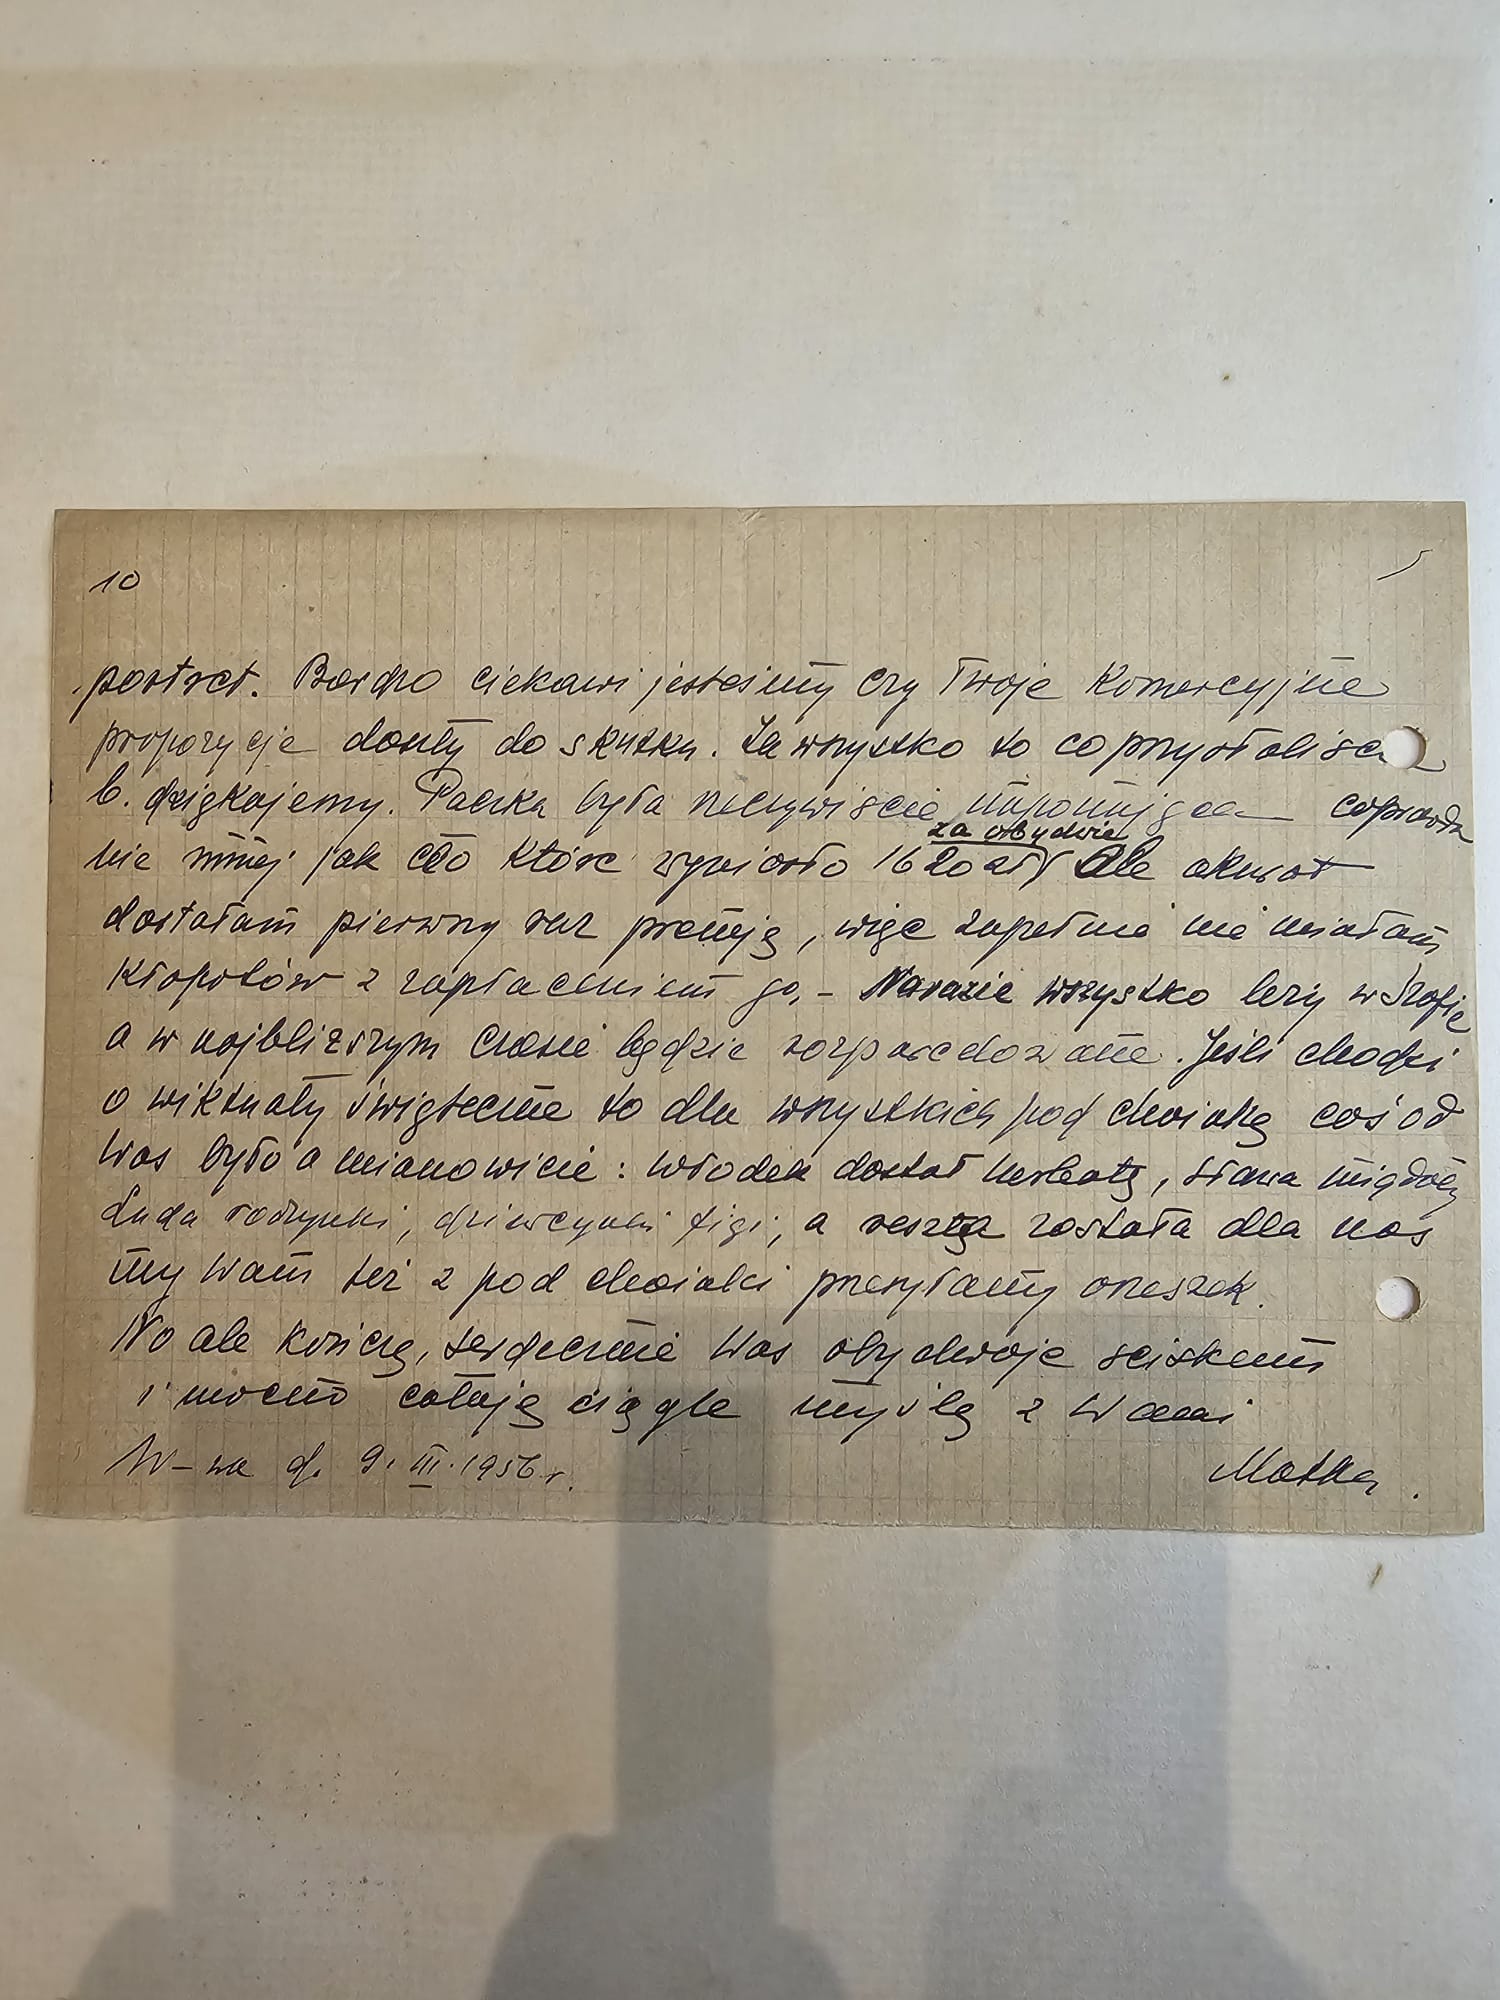 10
portret. Bardzo ciekawi jesteśmy czy Twoje Komercyjne
propozycje doszły do skutku. Za wszystko to co przysłaliście
b. dziękujemy. Paczka była rzeczywiście coprawda
za obydwie
nie mniej jak cło które wyniosło 1620 zł) Ale akurat
dostałam pierwszy raz premię, więc zupełnie nie miałam
kłopotów z zapłaceniem go, – Narazie wszystko leży w szafie
a w najbliższym czasie będzie rozparcelowane. Jeśli chodzi
o wiktuały świąteczne to dla wszystkich pod choinkę coś od
Was było a mianowicie: Włodek dostał herbatę, Sława migdały
Luda rodzynki, dziewczynki figi, a reszta została dla nas
my Wam też z pod choinki przesyłamy orzeszek.
No ale kończę, serdecznie Was obydwoje ściskam
i mocno całuję ciągle myślę z Wami
W-wa d. 9. III. 1956 r.
Matka.